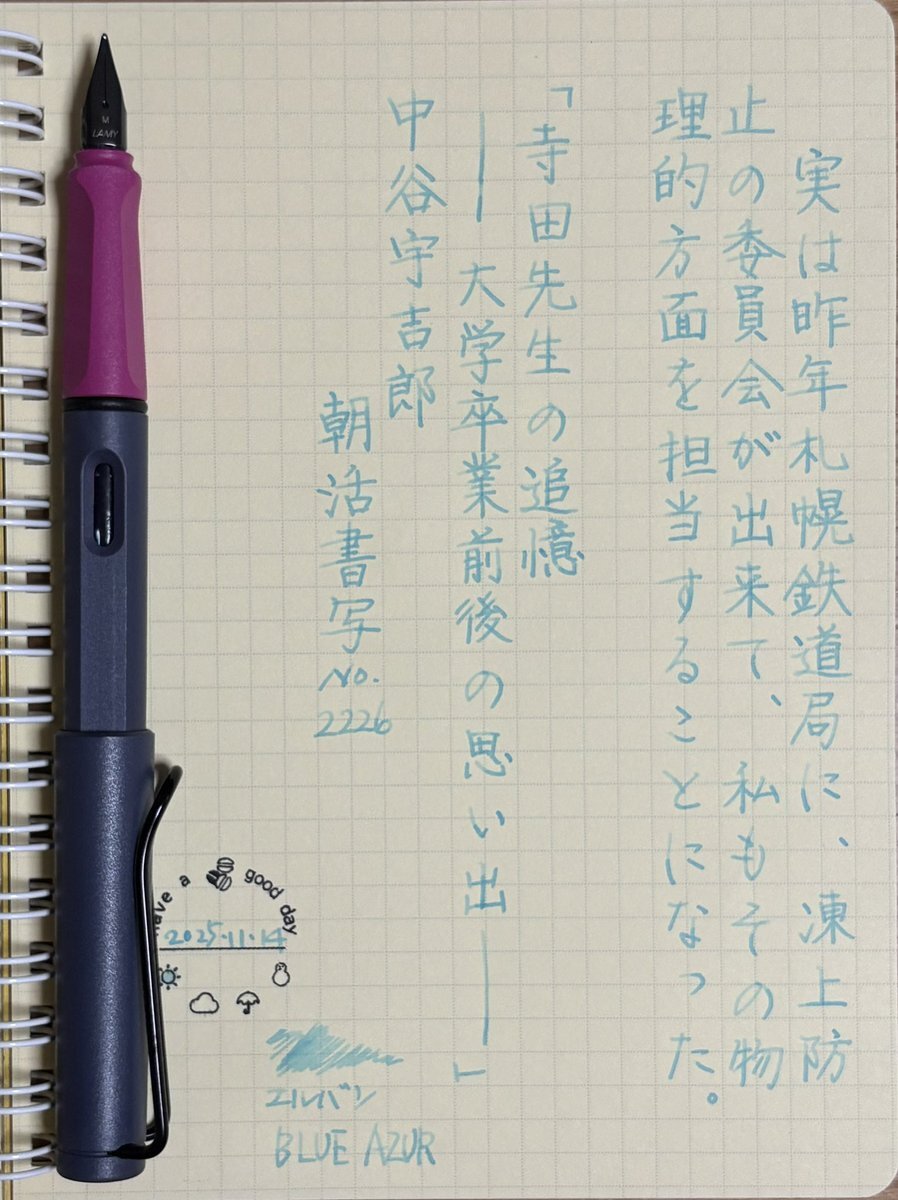 実は昨年札幌鉄道局に、凍上防
止の委員会が出来て、私もその物
理的方面を担当することになった。
「寺田先生の追憶
――大学卒業前後の思い出――」
中谷宇吉郎
朝活書写No.2226
M
LAMY
have a good day
2025.11.14
エルバン
BLUE AZUR